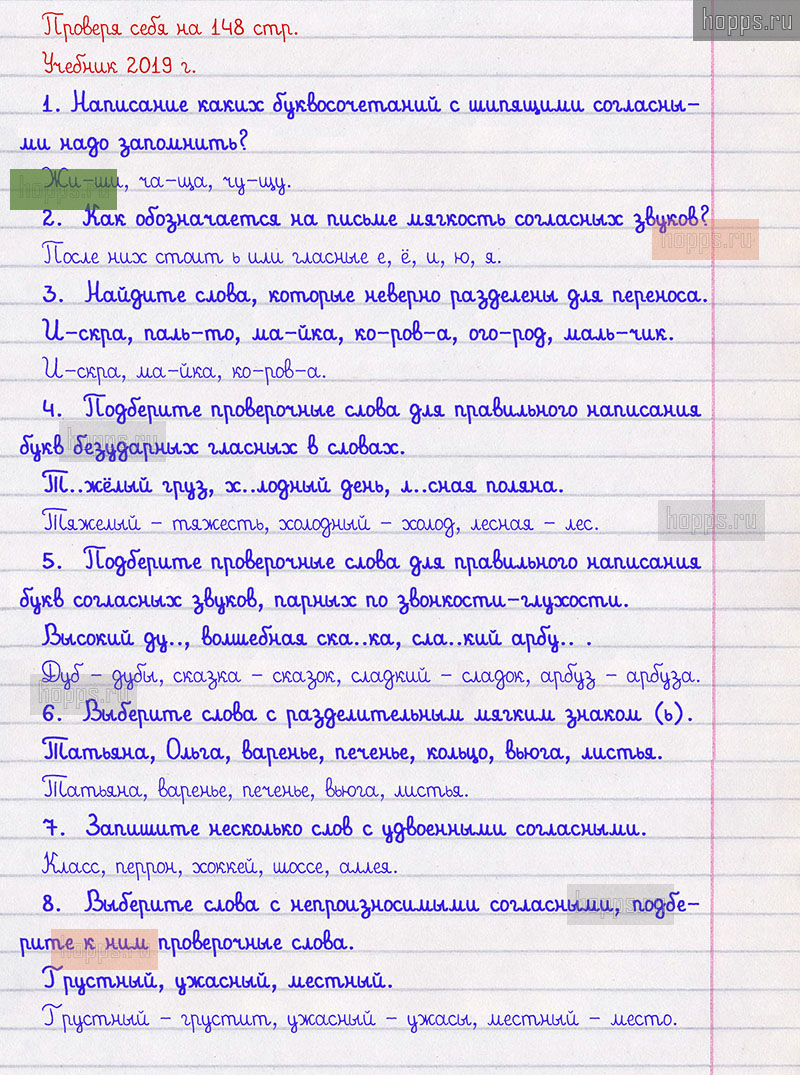 hopps.ru
Проверя себя на 148 стр.
Учебник 2019 г.
1. Написание каких буквосочетаний с шипящими согласны-
ми надо запомнить?
Жи-ши, ча-ща, чу-щу.
hopps.ru
2. Как обозначается на письме мягкость согласных звуков?
hopps.ru
После них стоит ь или гласные е, ё, и, ю, я.
3. Найдите слова, которые неверно разделены для переноса.
И-скра, паль-то, ма-йка, ко-ров-а, ого-род, маль-чик.
И-скра, ма-йка, ко-ров-а.
4. Подберите проверочные слова для правильного написания
hopps.ru
букв безударных гласных в словах.
Т..жёлый груз, х..лодный день, л..сная поляна.
Тяжелый - тяжесть, холодный - холод, лесная - лес.
hopps.ru
5. Подберите проверочные слова для правильного написания
букв согласных звуков, парных по звонкости-глухости.
Высокий ду.., волшебная ска..ка, сла..кий арбу.. .
Дуб - дубы, сказка - сказок, сладкий - сладок, арбуз - арбуза.
hopps.ru
6. Выберите слова с разделительным мягким знаком (ь).
Татьяна, Ольга, варенье, печенье, кольцо, вьюга, листья.
Татьяна, варенье, печенье, вьюга, листья.
7. Запишите несколько слов с удвоенными согласными.
Класс, перрон, хоккей, шоссе, аллея.
8. Выберите слова с непроизносимыми согласными, подбе-
hopps.ru
рите к ним проверочные слова.
hopps.ru
Грустный, ужасный, местный.
Грустный - грустит, ужасный - ужасы, местный - место.